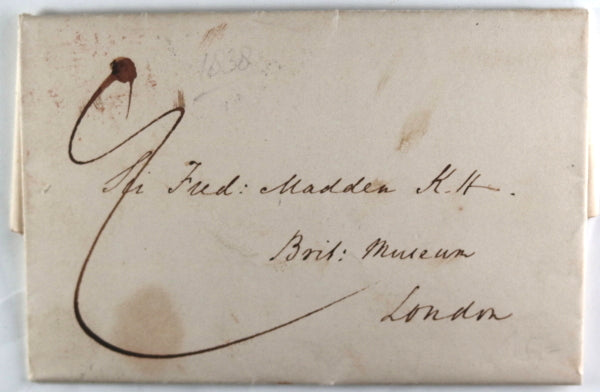 1838
2
Sir Fred: Madden K.H.
Brit: Museum
London